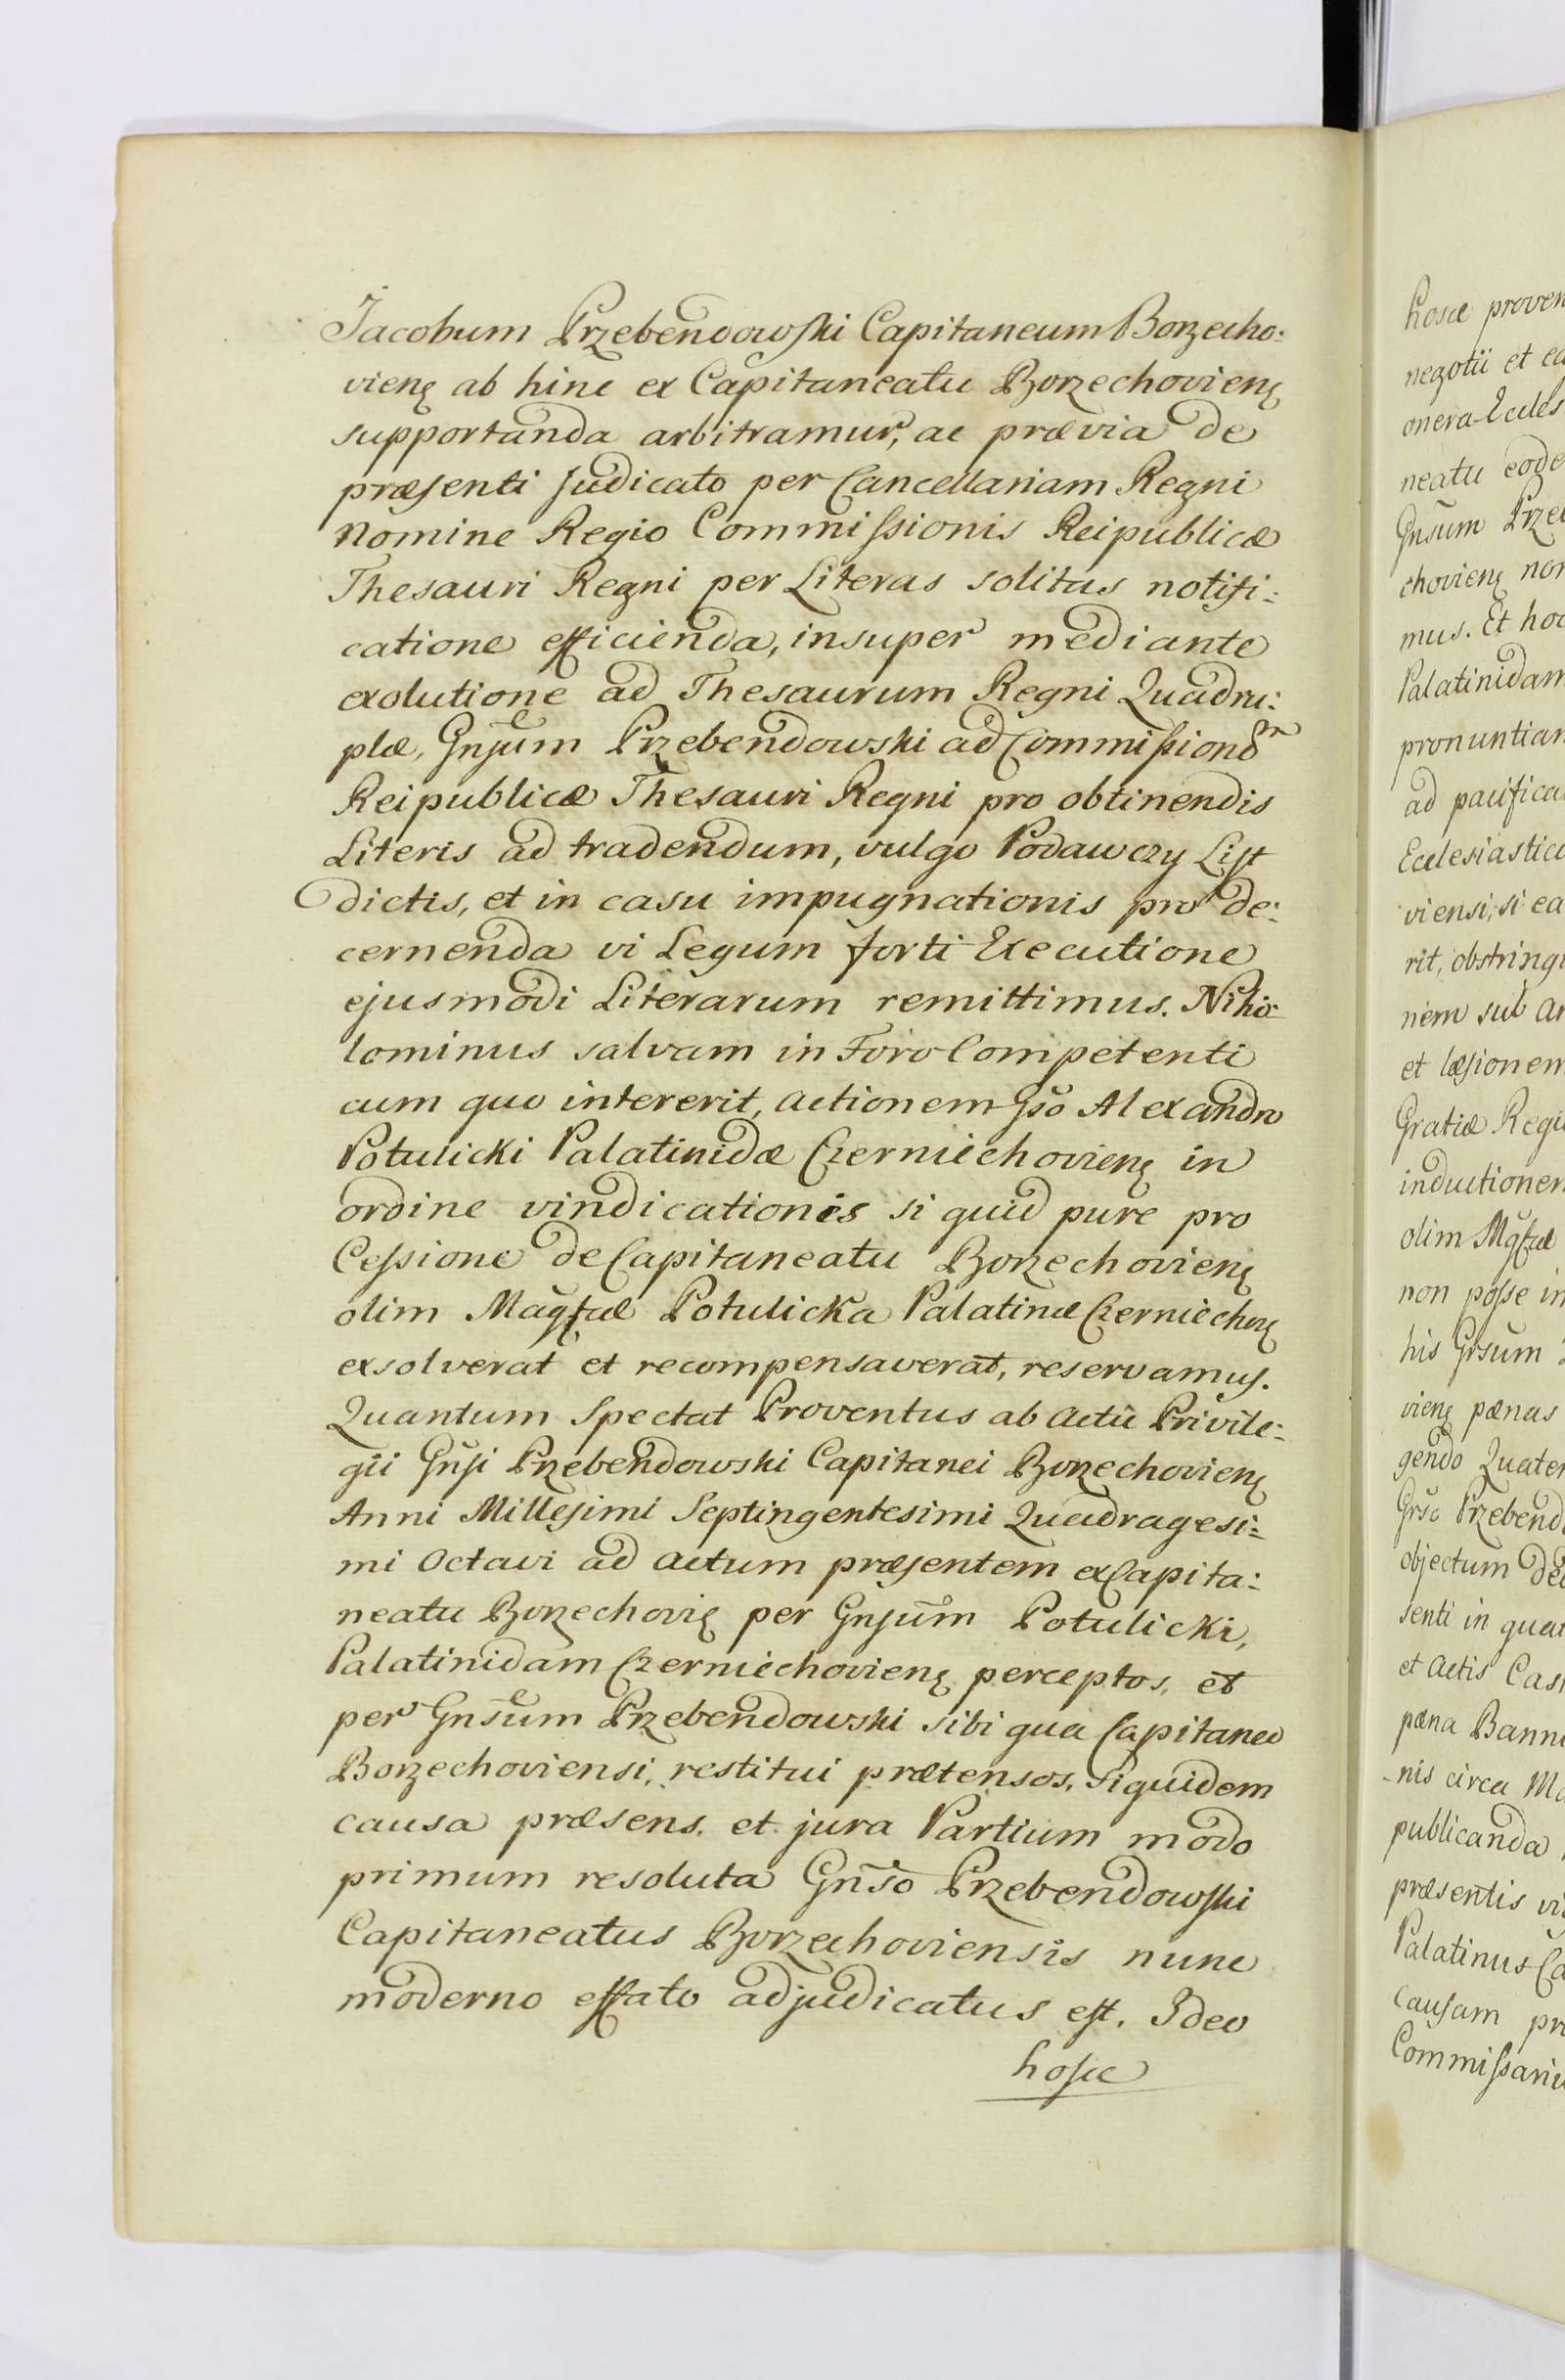 Jacobum Przebendowski Capitaneum Borzecho:
vienę ab hinc ex Capitaneatu Borzechovienę
supportanda arbitramur, ac prævia de
præsenti Judicato per Cancellariam Regni
Nomine Regio Commissionis Reipublicæ
Thesauri Regni per Literas solitas notifi:
catione efficienda, insuper mediante
exolutione ad Thesaurum Regni Quadru:
plæ, Gnsum Przebendowski ad Commissionem
Reipublicæ Thesauri Regni pro obtinendis
Literis ad tradendum, vulgo Podawczy List
dictis, et in casu impugnationis pro de:
cernenda vi Legum forti Executione
ejusmodi Literarum remittimus. Nihi:
lominus salvam in Foro Competenti
cum quo intererit, actionem Gso Alexandro
Potulicki Palatinidæ Czerniechovienę in
ordine vindicationis si quid pure pro
Cessione de Capitaneatu Borzechovienę
olim Magfæ Potulicka Palatinæ Czerniechę
exsolverat et recompensaverat, reservamus.
Quantum Spectat Proventus ab actû Privile:
gii Gnsi Przebendowski Capitanei Borzechovienę
Anni Millesimi Septingentesimi Quadragesi:
mi Octavi ad actum præsentem ex Capita:
neatu Borzechovię per Gnsum Potulicki,
Palatinidam Czerniechovienę perceptos, et
per Gnsum Przebendowski sibi qua Capitaneo
Borzechoviensi, restitui prætensos, siquidem
causa præsens, et jura Partium modo
primum resoluta Gnso Przebendowski
Capitaneatus Borzechoviensis nunc
moderno effato adjudicatus est. Ideo
hosce
hosce
negotii et
onera
neatu
Gnsum
chovienę
mus. Et
Palatinidam
ad
viensi, si ea
rit,
nem sub
et læsionem
Gratiæ
olim Magfæ
non posse in
his Gnsum
vienę pænas
gendo
Gnso
objectum
senti in
et Actis
pæna
nis circa
publicanda
præsentis
Palatinus
Causam